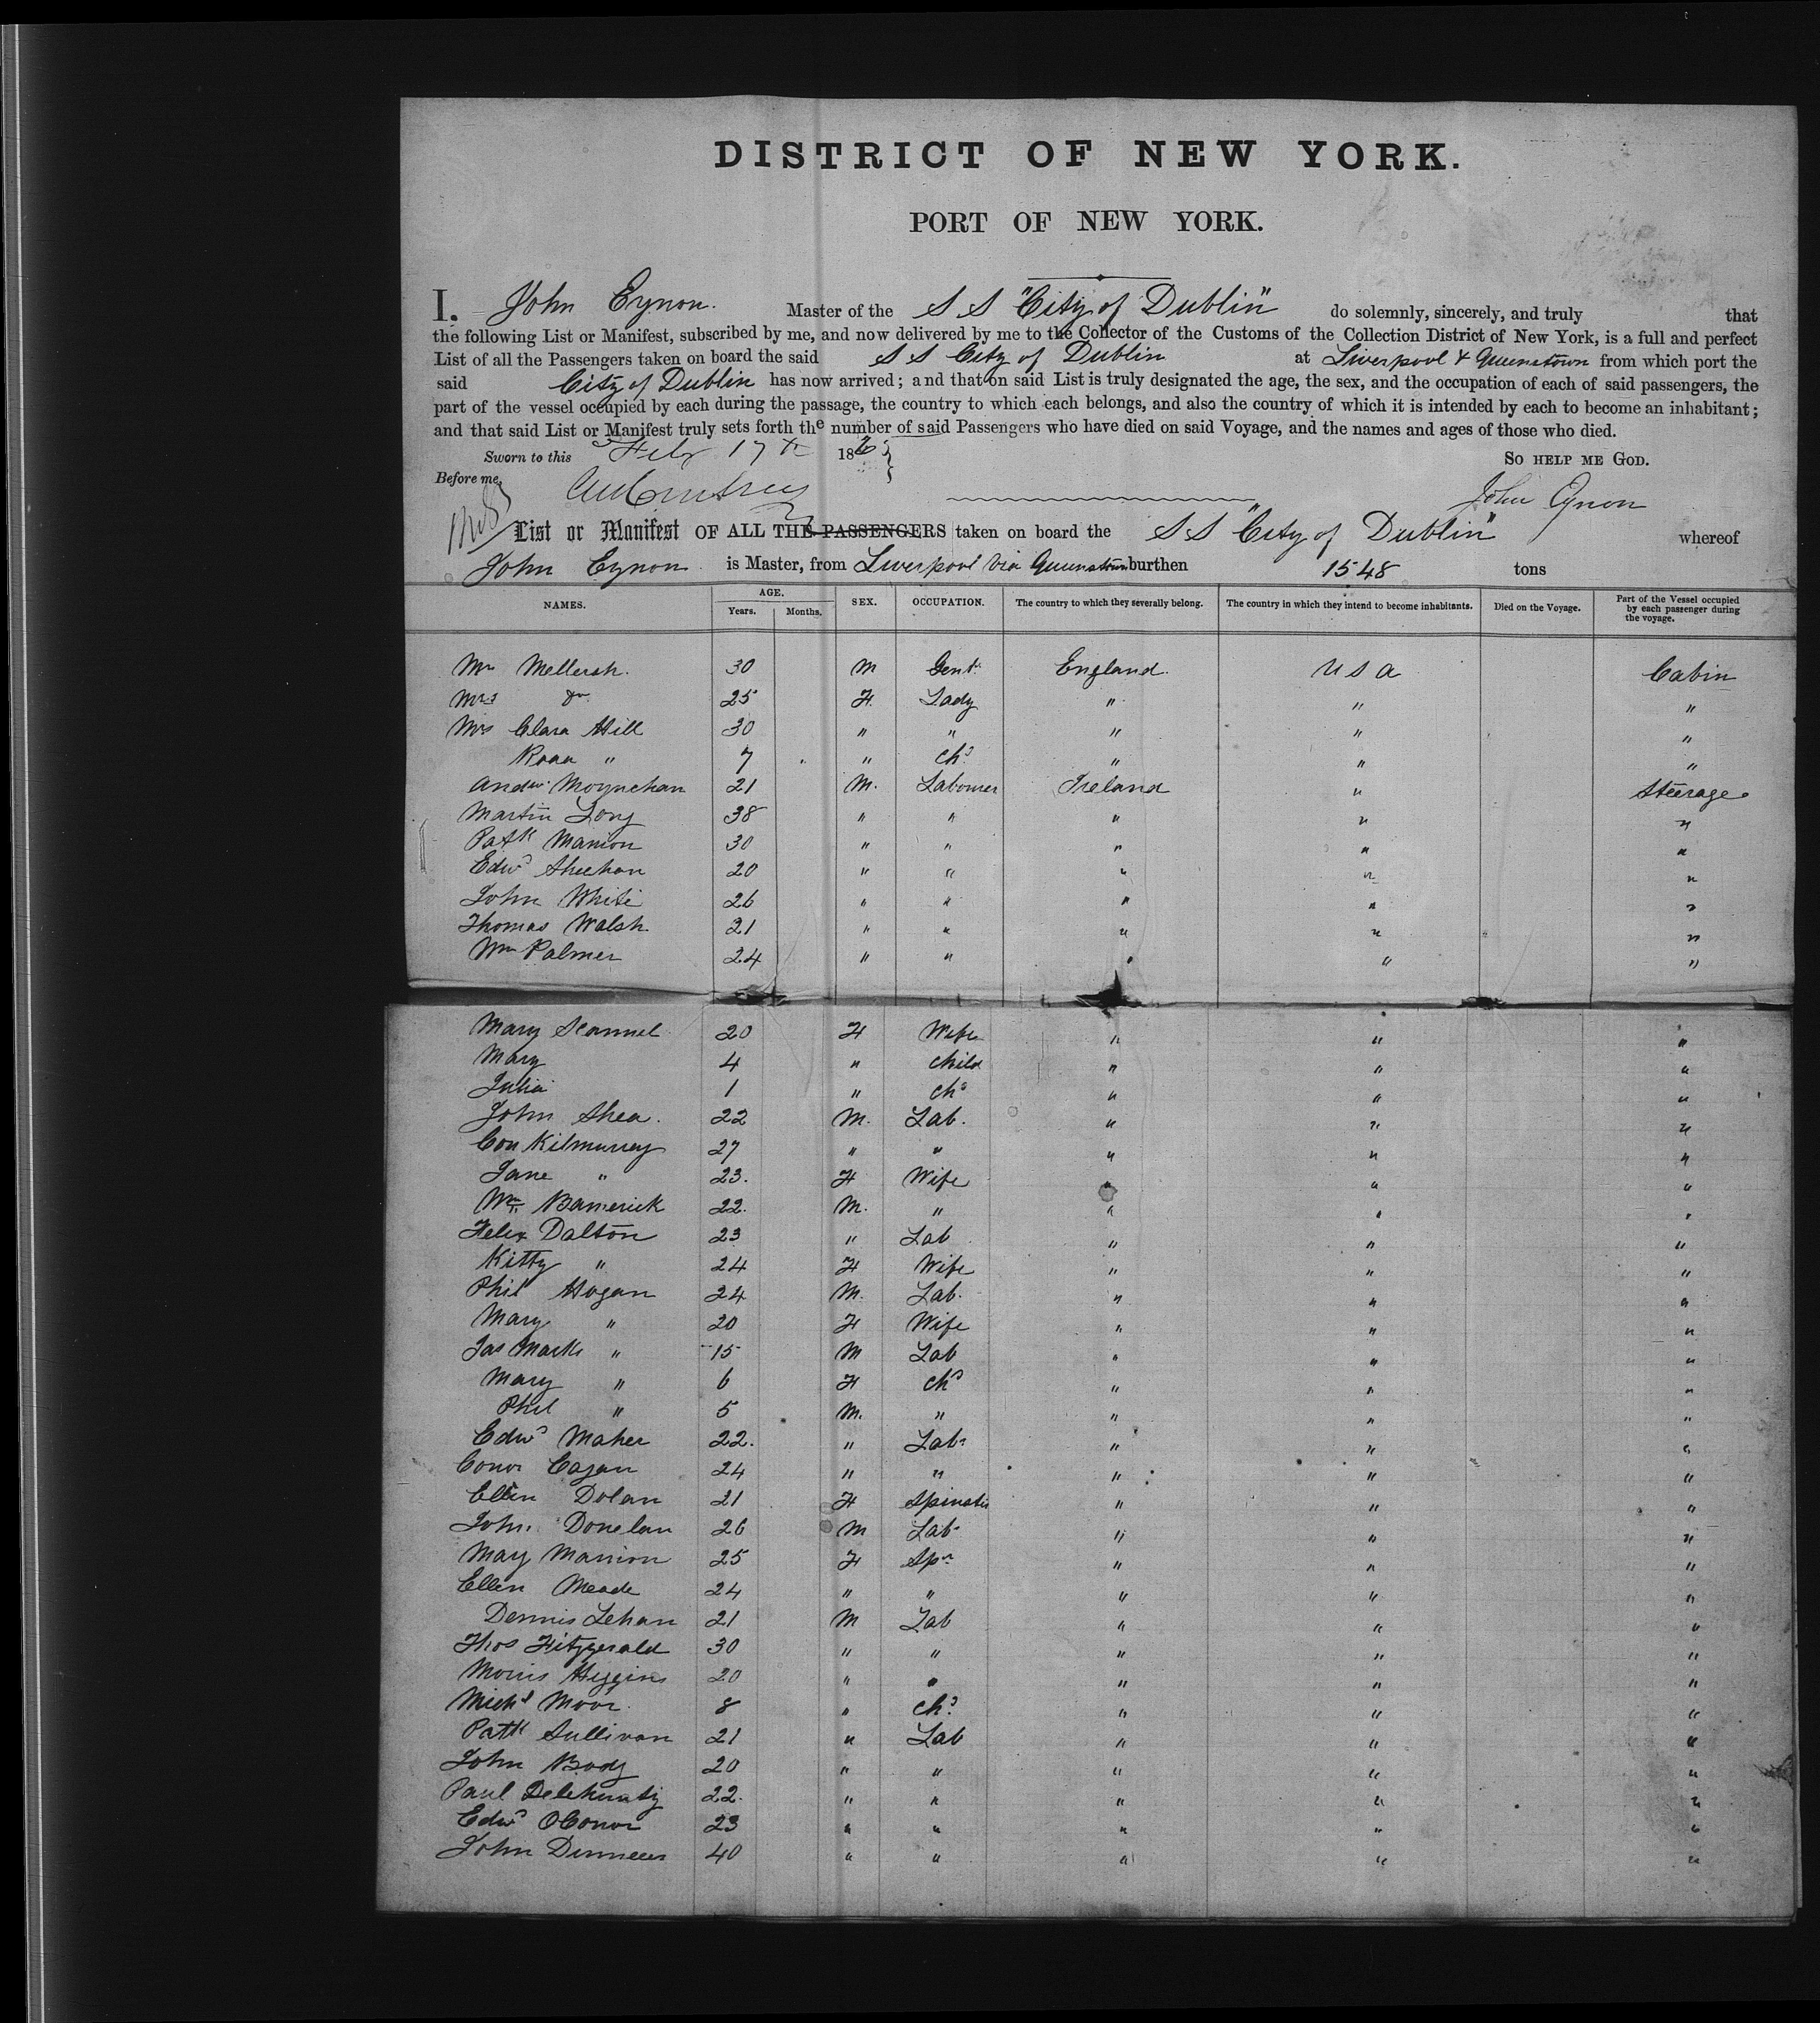 DISTRICT OF NEW YORK.
PORT OF NEW YORK.
I, John Eynon. Master of the S S "City of Dublin" do solemnly, sincerely, and truly that
the following List or Manifest, subscribed by me, and now delivered by me to the Collector of the Customs of the Collection District of New York, is a full and perfect
List of all the Passengers taken on board the said S S City of Dublin at Liverpool & Queenstown from which port the
said City of Dublin has now arrived; and that on said List is truly designated the age, the sex, and the occupation of each of said passengers, the
part of the vessel occupied by each during the passage, the country to which each belongs, and also the country of which it is intended by each to become an inhabitant;
and that said List or Manifest truly sets forth the number of said Passengers who have died on said Voyage, and the names and ages of those who died.
Sworn to this Feby 17th 186 SO HELP ME GOD.
Before me, John Eynon
List or Manifest OF ALL THE PASSENGERS taken on board the S S "City of Dublin" whereof
John Eynon is Master, from Liverpool via Queenstown burthen 1548 tons
NAMES. AGE. Years. Months. SEX. OCCUPATION. The country to which they severally belong. The country in which they intend to become inhabitants. Died on the Voyage. Part of the Vessel occupied by each passenger during the voyage.
Mr Mellersh. 30 M Gent. England. U S A Cabin
Mrs do 25 F. Lady " " "
Mrs Clara Hill 30 " " " " "
Rosa " 7 " chd " " "
Andw. Moynehan 21 M. Labourer Ireland " Steerage
Martin Long 38 " " " " "
Patk Manion 30 " " " " "
Edwd Sheehan 20 " " " " "
John White 26 " " " " "
Thomas Walsh 21 " " " " "
Wm Palmer 24 " " " " "
Mary Scannel 20 F Wife " " "
Mary 4 " Child " " "
Julia 1 " chd " " "
John Shea. 22 M. Lab. " " "
Con Kilmurrey 27 " " " " "
Jane " 23. F Wife " " "
Wm Bamerick 22. M. " " " "
Felix Dalton 23 " Lab " " "
Kitty " 24 F Wife " " "
Phil Hogan 24 M. Lab. " " "
Mary " 20 F Wife " " "
Jas Mark " 15 M Lab " " "
Mary " 6 F chd " " "
Phil " 5 M. " " " "
Edwd Maher 22. " Lab. " " "
Conor Cagan 24 " " " " "
Ellen Dolan 21 F Spinster " " "
John Donelan 26 M Lab. " " "
Mary Manion 25 F Spr " " "
Ellen Meade 24 " " " " "
Dennis Lehan 21 M Lab " " "
Thos Fitzgerald 30 " " " " "
Morris Higgins 20 " " " " "
Michl Moor 8 " chd " " "
Patk Sullivan 21 " Lab " " "
John Body 20 " " " " "
Paul Delehunty 22. " " " " "
Edwd OConor 23 " " " " "
John 40 " " " " "